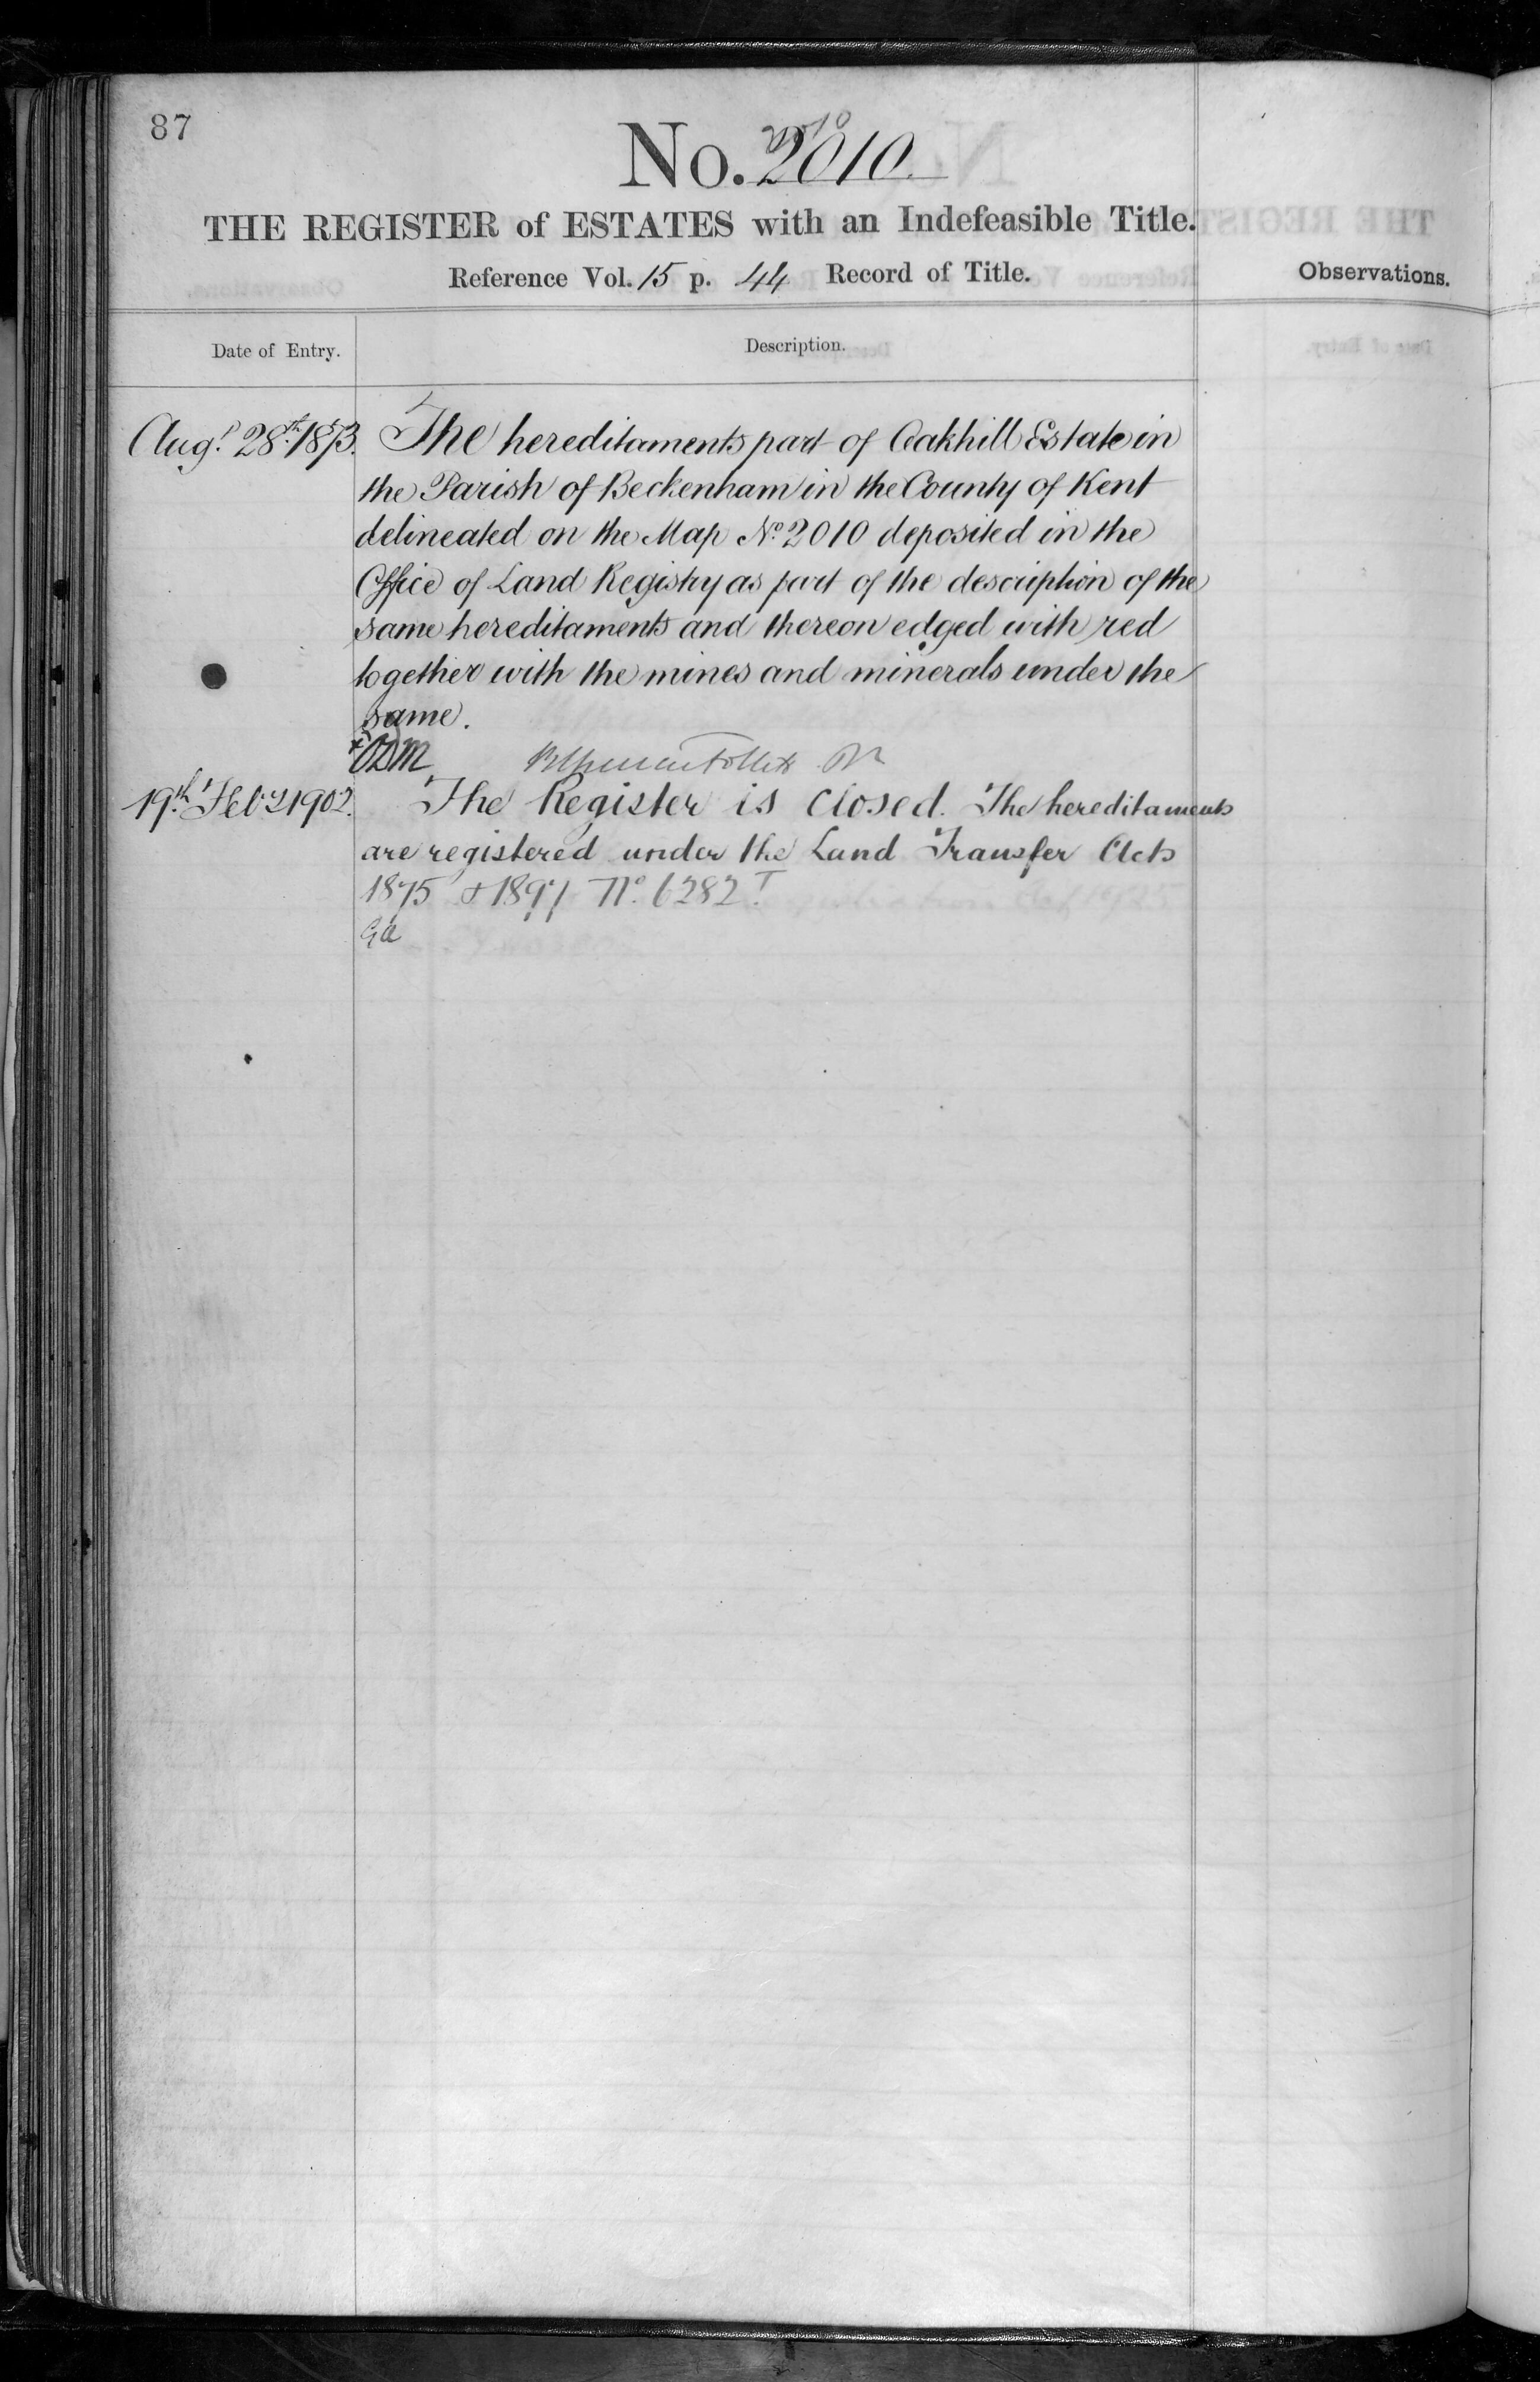 87
No. 2010
THE REGISTER of ESTATES with an Indefeasible Title.
Reference Vol. 15 p. 44 Record of Title.
Observations.
Date of Entry.
Description.
Augt. 28th. 1873. The hereditaments part of Oakhill Estate in
the Parish of Beckenham in the County of Kent
delineated on the Map No. 2010 deposited in the
Office of Land Registry as part of the description of the
same hereditaments and thereon edged with red
together with the mines and minerals under the
same.
Follett
19th. Feby 1902. The Register is closed. The hereditaments
are registered under the Land Transfer Acts
1875 & 1897 No. 6282 T